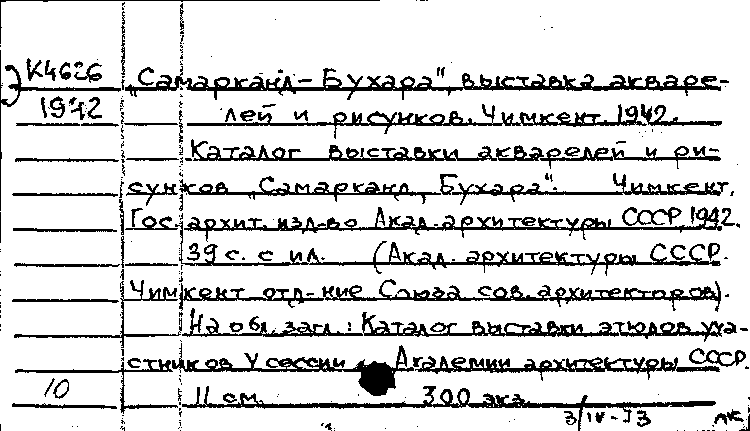 К4626 „Самарканд-Бухара", выставка акваре-
1942 лей и рисунков. Чимкент. 1942.
Каталог выставки акварелей и ри-
сунков „Самарканд, Бухара". Чимкент,
Гос. архит. изд-во Акад. архитектуры СССР, 1942.
39 с. с ил. (Акад. архитектуры СССР.
Чимкент отд-ние Союза сов. архитекторов).
На обл. загл.: Каталог выставки этюдов уча-
стников V сессии Академии архитектуры СССР.
10 11 см. 300 экз.